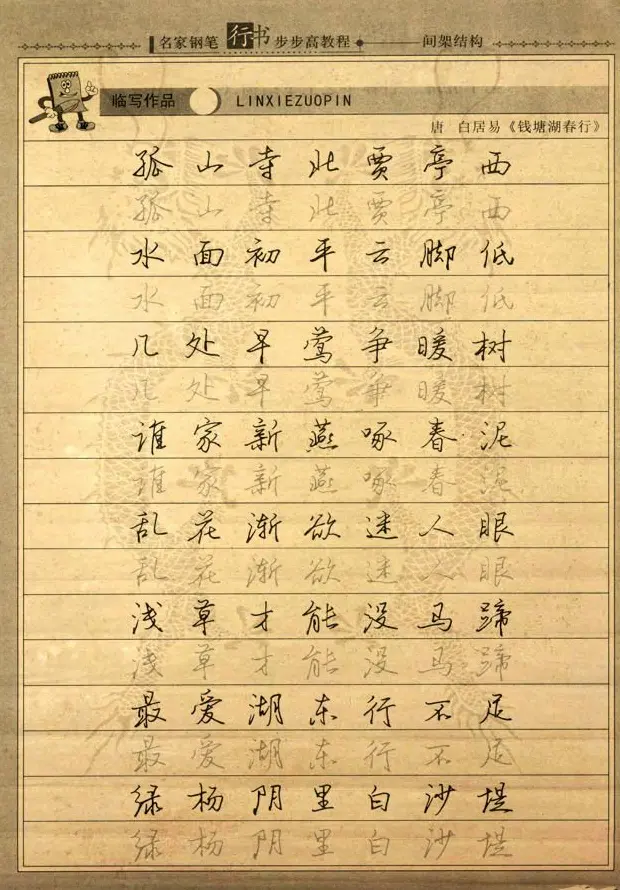 名家钢笔行书步步高教程 间架结构
临写作品 LINXIEZUOPIN
唐 白居易《钱塘湖春行》
孤山寺北贾亭西
孤山寺北贾亭西
水面初平云脚低
水面初平云脚低
几处早莺争暖树
几处早莺争暖树
谁家新燕啄春泥
谁家新燕啄春泥
乱花渐欲迷人眼
乱花渐欲迷人眼
浅草才能没马蹄
浅草才能没马蹄
最爱湖东行不足
最爱湖东行不足
绿杨阴里白沙堤
绿杨阴里白沙堤